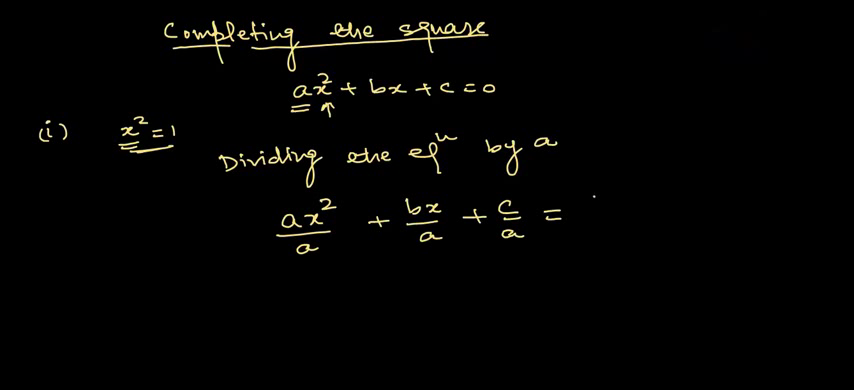 Completing the square
ax² + bx + c = 0
(i) x² = 1
Dividing the eqⁿ by a
ax²/a + bx/a + c/a =